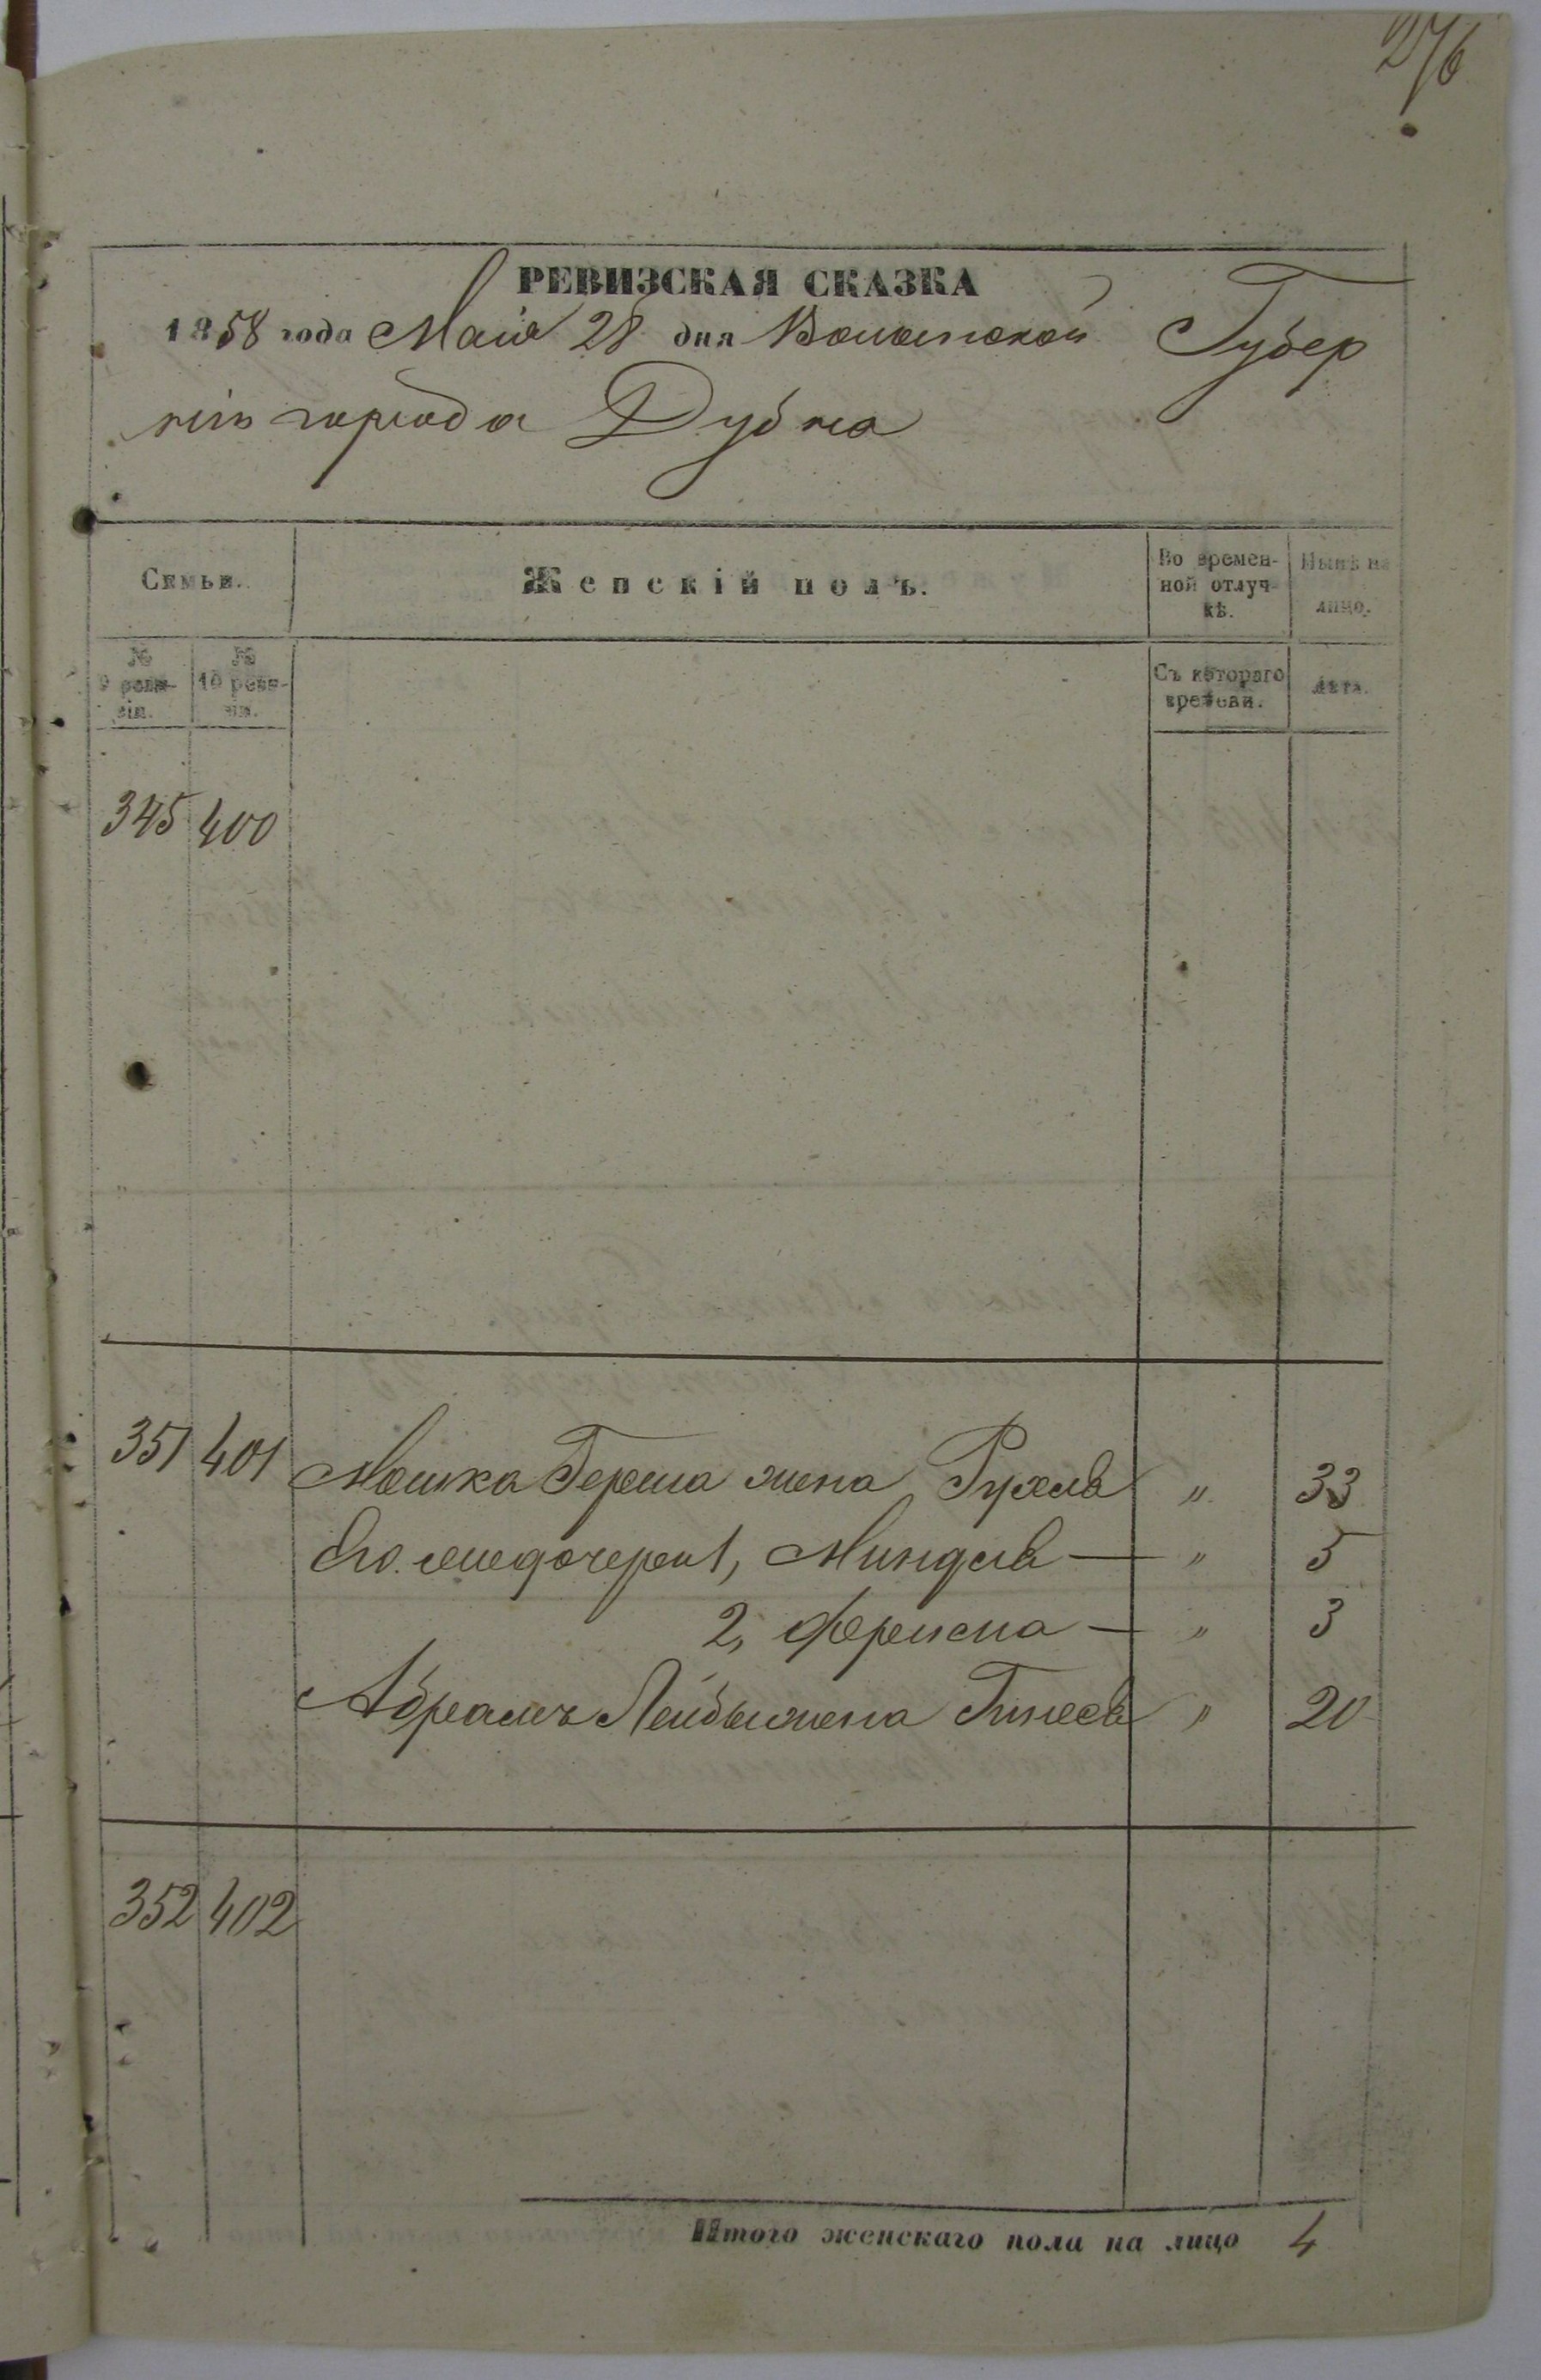 276
РЕВИЗСКАЯ СКАЗКА
1858 года Маія 28 дня Волынской Губер
ніи города Дубна
Семьи. Женскій полъ. Во времен-ной отлуч-кѣ. Нынѣ на лицо.
№ 9 реви-зіи. № 10 реви-зіи. Съ котораго времени. Лѣта.
345 400
351 401 Мошка Герша жена Рухля " 33
Его. дочери 1, Миндля — " 5
2, — " 3
Абрамъ Лейбы жена " 20
352 402
Итого женскаго пола на лицо 4